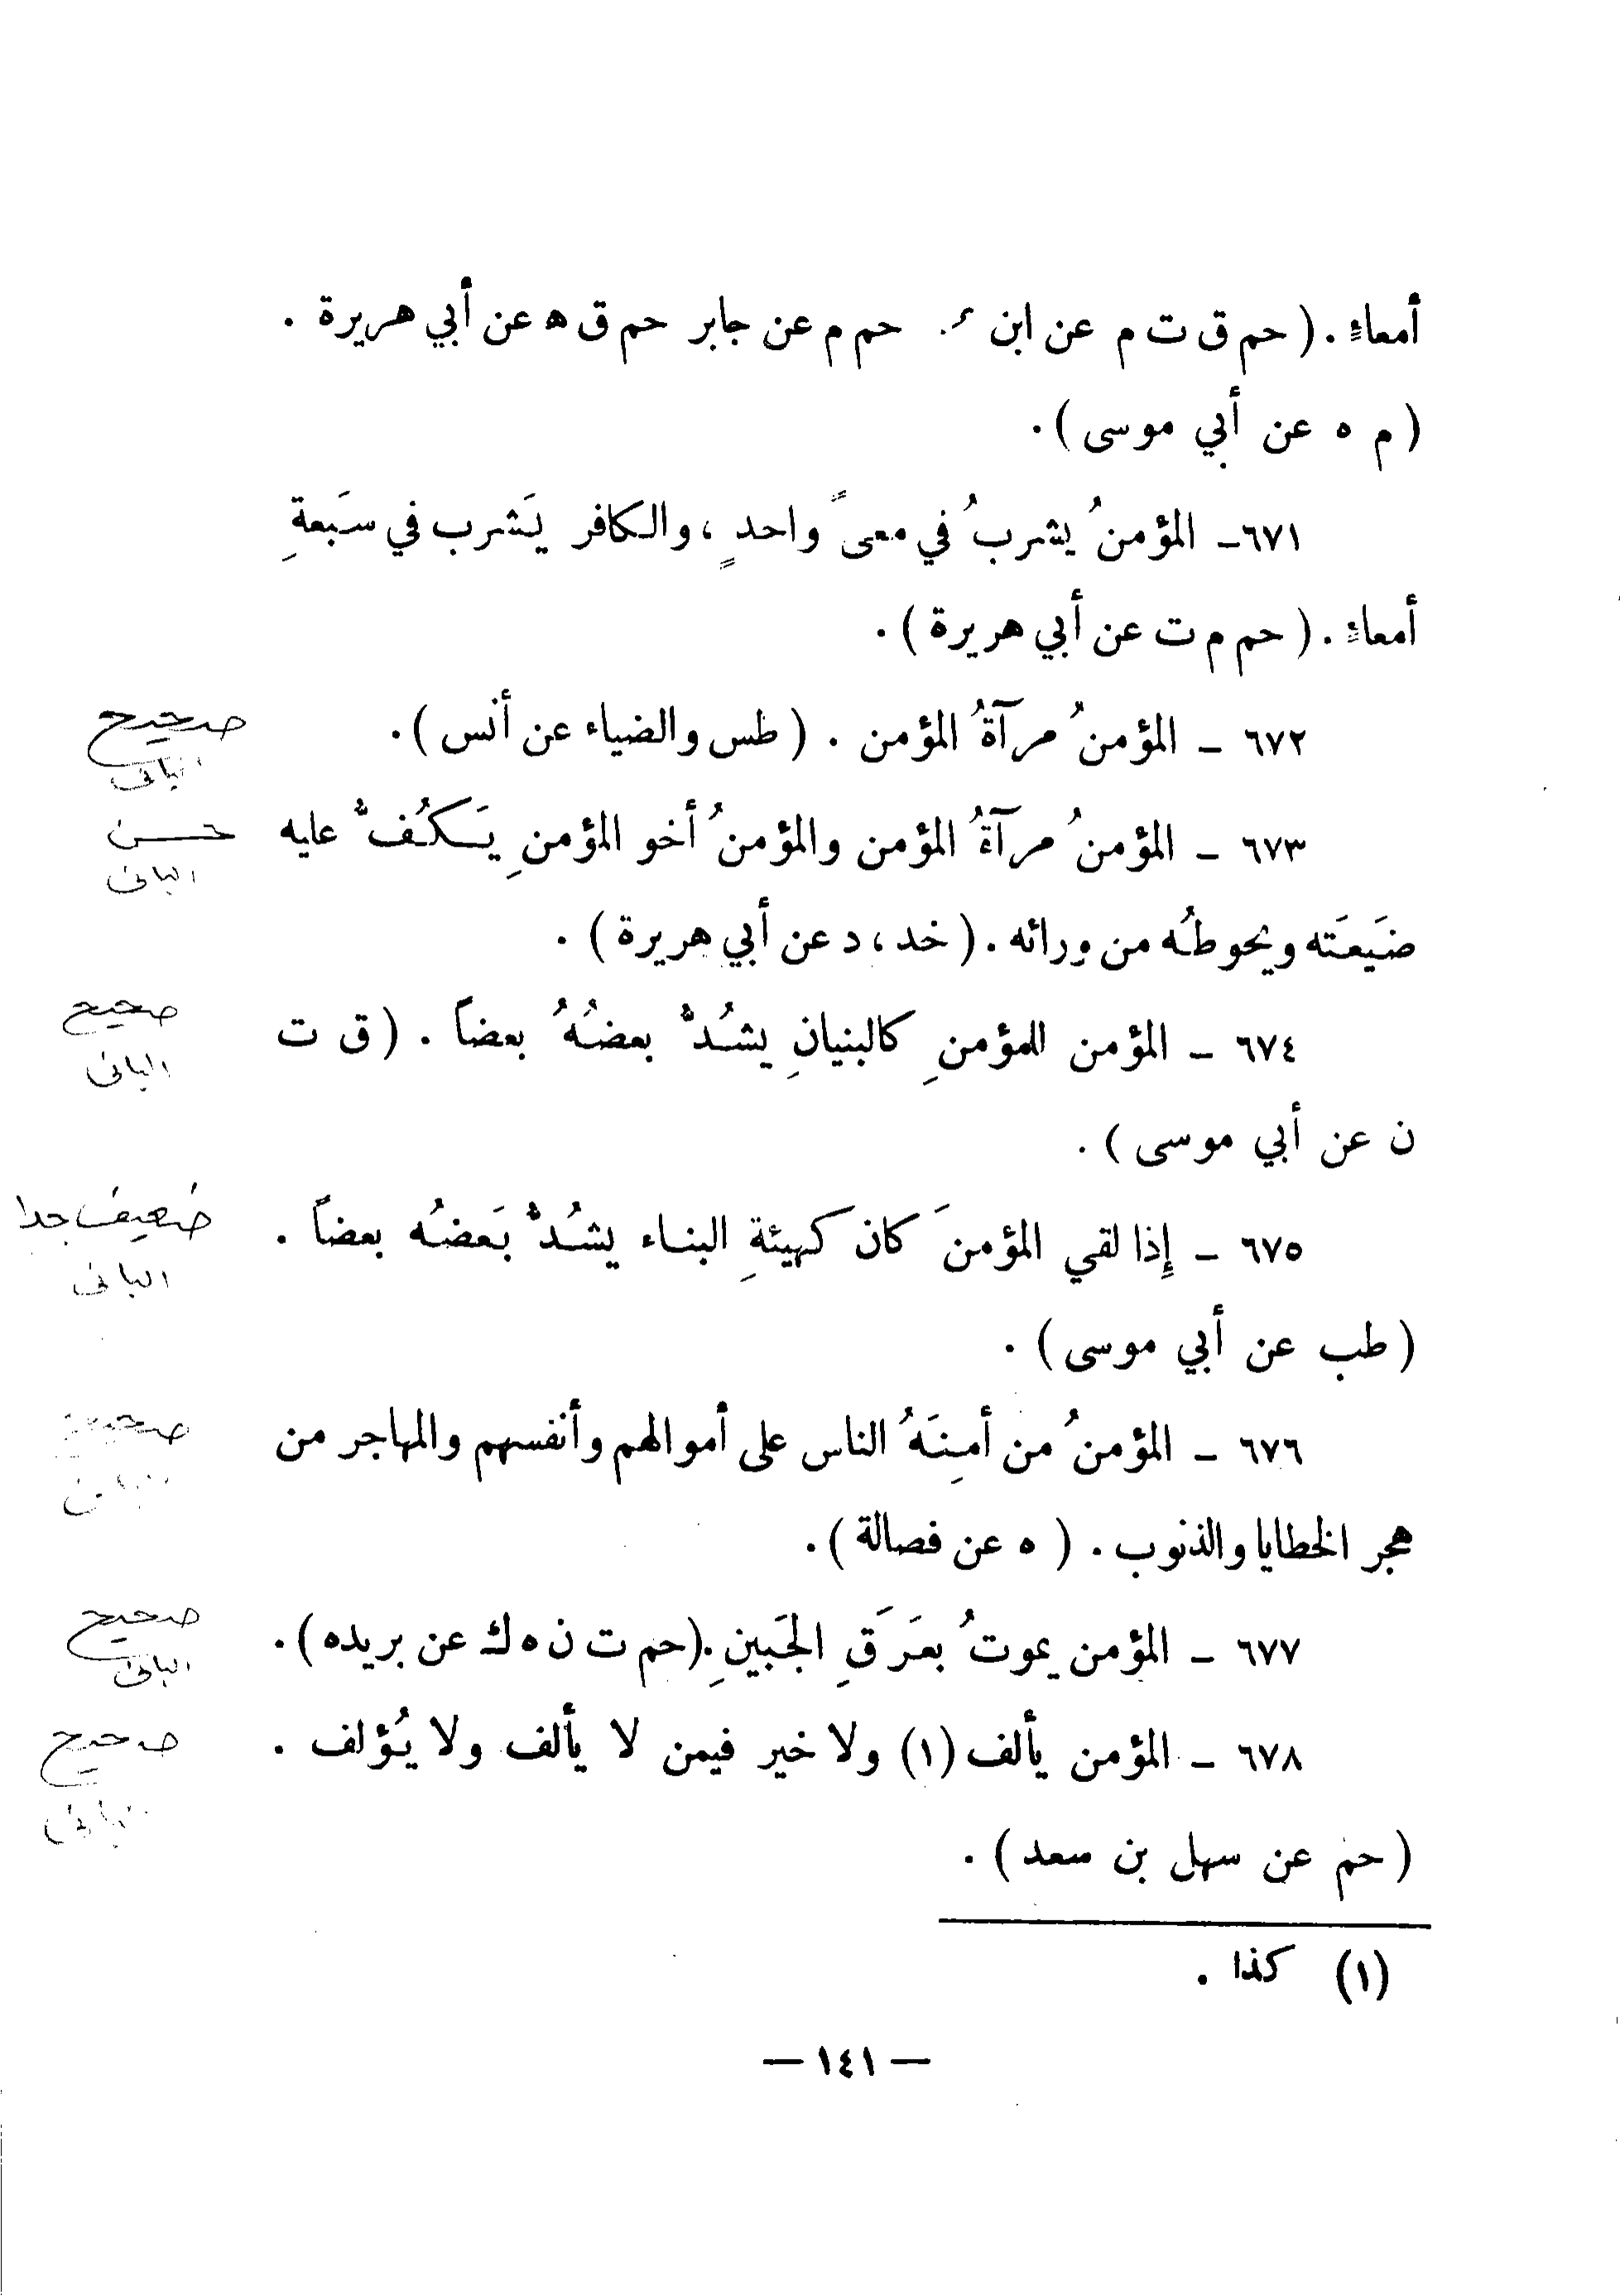 أمعاءٍ . ( حم ق ت م عن ابن حم م عن جابر حم ق ه عن أبي هريرة .
( م ه عن أبي موسى ) .
٦٧١ - المؤمنُ يشربُ في معىً واحدٍ ، والكافر يَشرب في سَبعةِ
أمعاءٍ . ( حم م ت عن أبي هريرة ) .
٦٧٢ - المؤمنُ مرآةُ المؤمن . ( طس والضياء عن أنس ) .
صحيح
البانى
٦٧٣ - المؤمنُ مرآةُ المؤمن والمؤمنُ أخو المؤمنِ يَكُفُّ عليه
حسن
البانى
ضَيعَته ويحوطُه من ورائه . ( خد ، د عن أبي هريرة ) .
٦٧٤ - المؤمن للمؤمنِ كالبنيانِ يشُدُّ بعضُهُ بعضاً . ( ق ت
صحيح
البانى
ن عن أبي موسى ) .
٦٧٥ - إِذا لقي المؤمنَ كان كهيئةِ البناء يشُدُّ بَعضُه بعضاً .
ضعيف جدا
البانى
( طب عن أبي موسى ) .
٦٧٦ - المؤمنُ من أمِنَهُ الناس على أموالهم وأنفسهم والمهاجر من
صحيح
هجر الخطايا والذنوب . ( ه عن فصالة ) .
٦٧٧ - المؤمن يموتُ بعَرَقِ الجَبينِ . ( حم ت ن ه ك عن بريده ) .
صحيح
البانى
٦٧٨ - المؤمن يألف (١) ولا خير فيمن لا يألف ولا يُؤلف .
صحيح
البانى
( حم عن سهل بن سعد ) .
(١) كذا .
— ١٤١ —